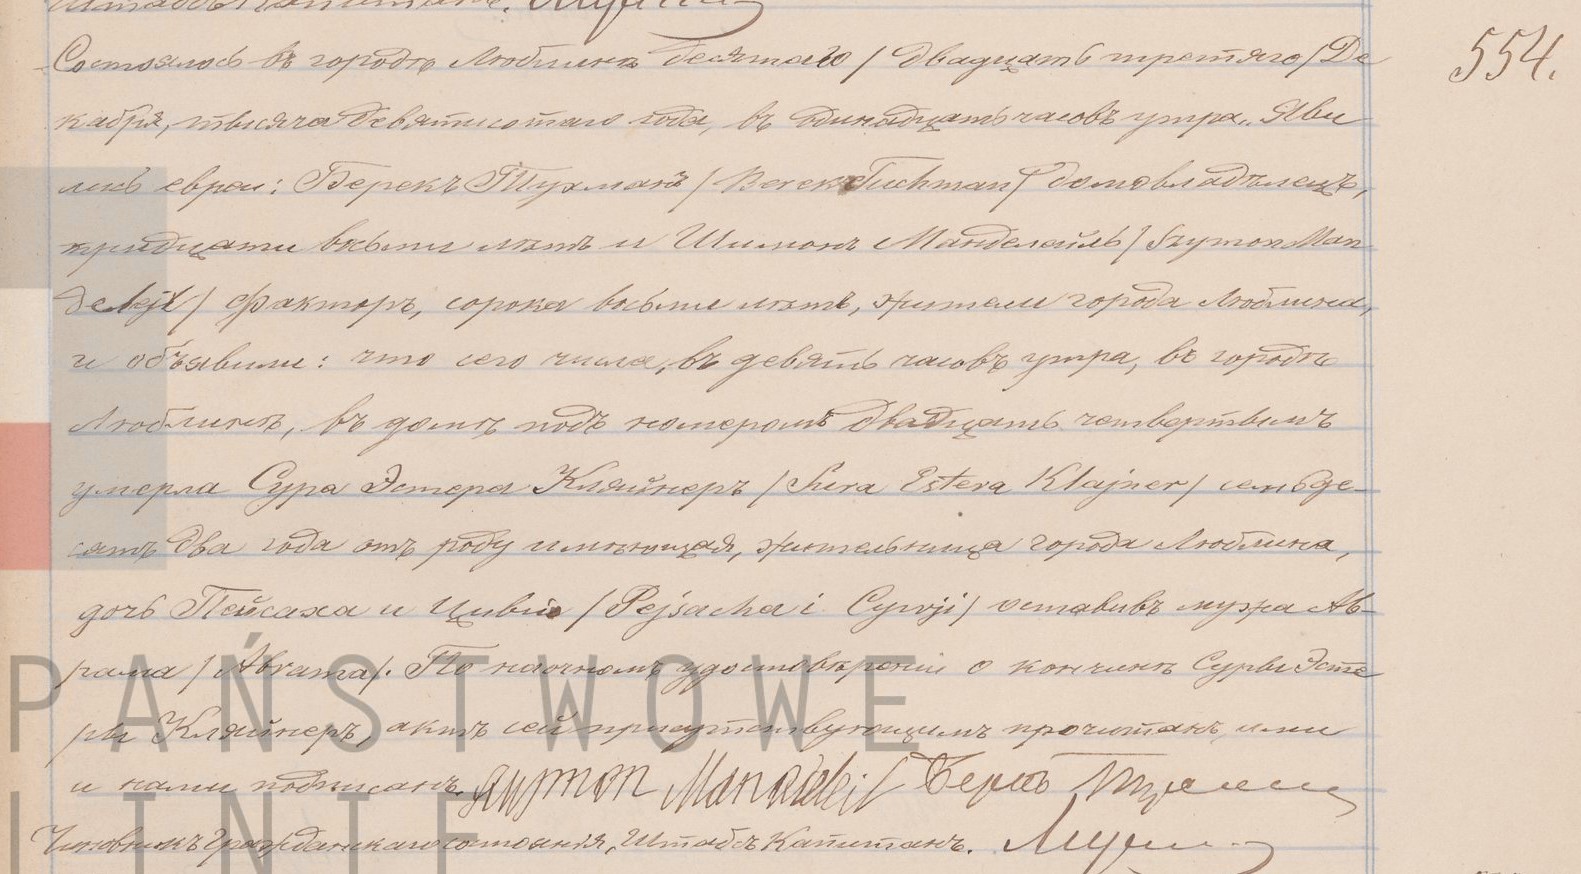 Штабсъ Капитанъ.
554.
Состоялось въ городѣ Люблинѣ десятаго / двадцать третьяго / Де
кабря, тысяча девятисотаго года, въ одинадцать часовъ утра. Яви
лись евреи: Берекъ Тухманъ / Berek Tuchman / домовладѣлецъ,
тридцати восьми лѣтъ и Шимонъ Манделейль / Szymon Man
delejl / факторъ, сорока восьми лѣтъ, жители города Люблина,
и объявили: что сего числа, въ девять часовъ утра, въ городѣ
Люблинѣ, въ домѣ подъ номеромъ двадцать четвертымъ
умерла Сура Эстера Кляйнеръ / Sura Estera Klajner / семьде-
сятъ два года отъ роду имѣющая, жительница города Люблина,
дочь Пейсаха и Цивіи / Pejsacha i Cywji / оставивъ мужа Аб-
рама / Abrama /. По наочномъ удостовѣреніи о кончинѣ Суры Эсте
ры Кляйнеръ, актъ сей присутствующимъ прочитанъ, ими
и нами подписанъ. Szymon Mandelejl Берекъ
Чиновникъ Гражданскаго состоянія, Штабсъ Капитанъ.
PAŃSTWOWE
LINIE